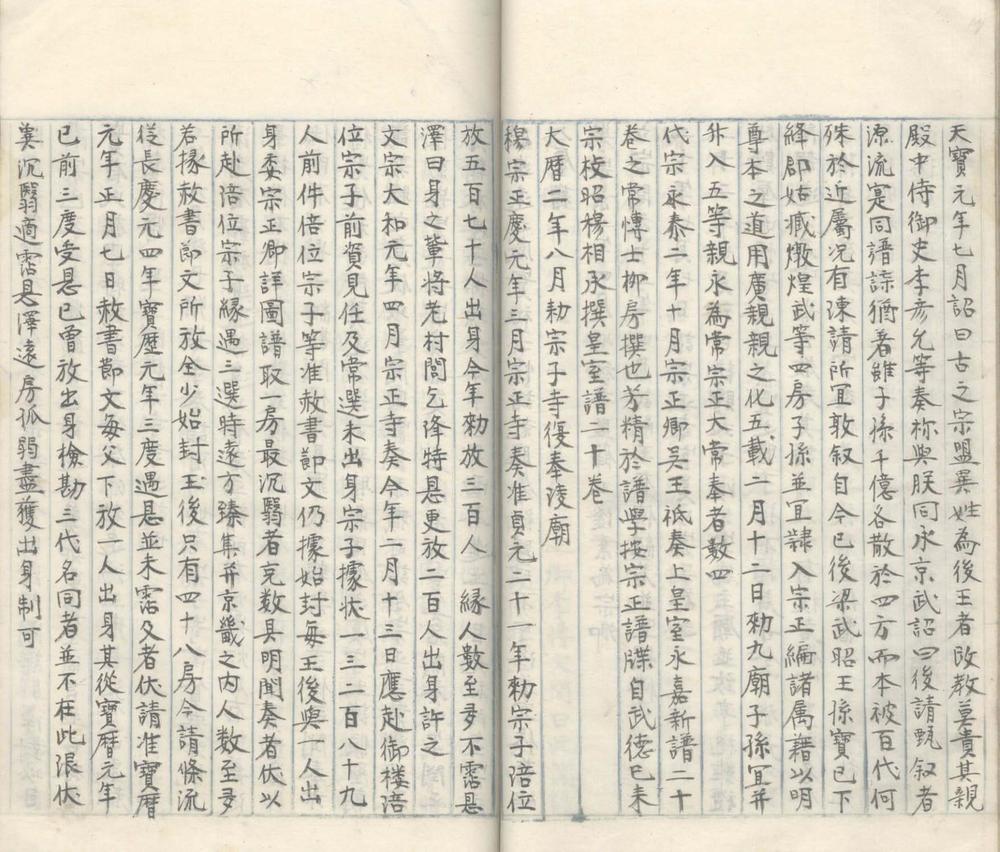 天寶元年七月詔曰古之宗盟異姓為後王者敃教莫貴其親
殿中侍御史李彦允等奏称與朕同承京武詔曰後請甄叙者
源流寔同譜諜猶者雖子孫千億各散於四方而本被百代何
殊於近属况有陳請所宜敦叙自今已後梁武昭王孫寶已下
絳郡姑臧燉煌武等四房子孫並宜隷入宗正編諸属籍以明
尊本之道用廣親親之化五載二月十二日勑九廟子孫宜并
升入五等親永為常宗正大常奉者数四
代宗永泰二年十月宗正卿吴王祗奏上皇室永嘉新譜二十
卷之常慱士柳房撰也芳精於譜學按宗正譜牒自武德已来
宗枝昭楊相承撰皇室譜二十卷
大暦二年八月勑宗子寺復奉陵廟
穆宗正慶元年三月宗正寺奏准貞元二十一年勑宗子陪位
放五百七十人出身今年勑放三百人縁人数至多不霑恩
澤曰身之軰將老村閭乞降特恩更放二百人出身許之
文宗大和元年四月宗正寺奏今年二月十三日應赴御楼陪
位宗子前資見任及常選未出身宗子據状一三二百八十九
人前件倍位宗子等准赦書節文仍據始封每王後與一人出
身委宗正卿詳圖譜取一房最沉翳者充数具明聞奏者伏以
所赴陪位宗子縁遇三選時遠方臻集并京畿之内人数至多
若據赦書節文所放全少始封王後只有四十八房今請條流
從長慶元四年寶歴元年三度遇恩並未霑及者伏請准寶暦
元年正月七日赦書節文每父下放一人出身其從寶暦元年
已前三度受恩已曾放出身檢勘三代名同者並不在此限伏
冀沉翳適霑恩澤遠房孤弱盡獲出身制可